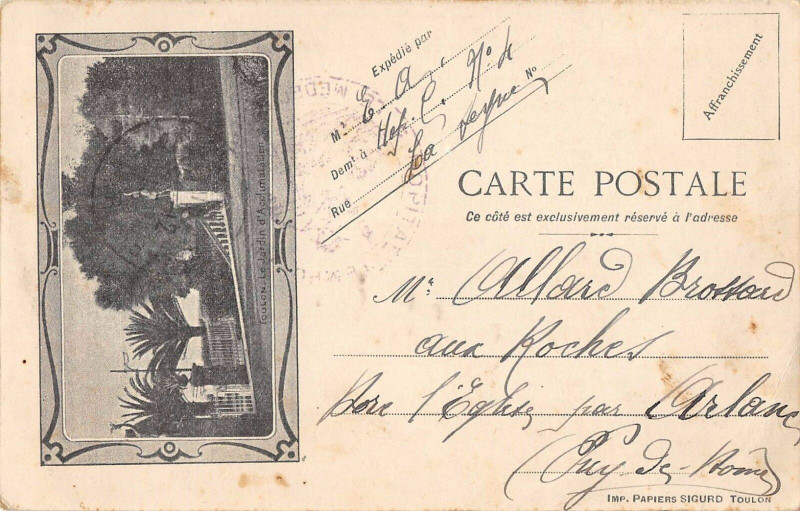 TOULON. Le Jardin d'Acclimatation
Expédié par
Mr E. A.
Demt à Hop. C. No 4
Rue La Seyne No
Affranchissement
CARTE POSTALE
Ce côté est exclusivement réservé à l'adresse
Mr Allard Brossard
aux Roches
l'Eglise par Arlanc
Puy-de-Dôme
IMP. PAPIERS SIGURD TOULON